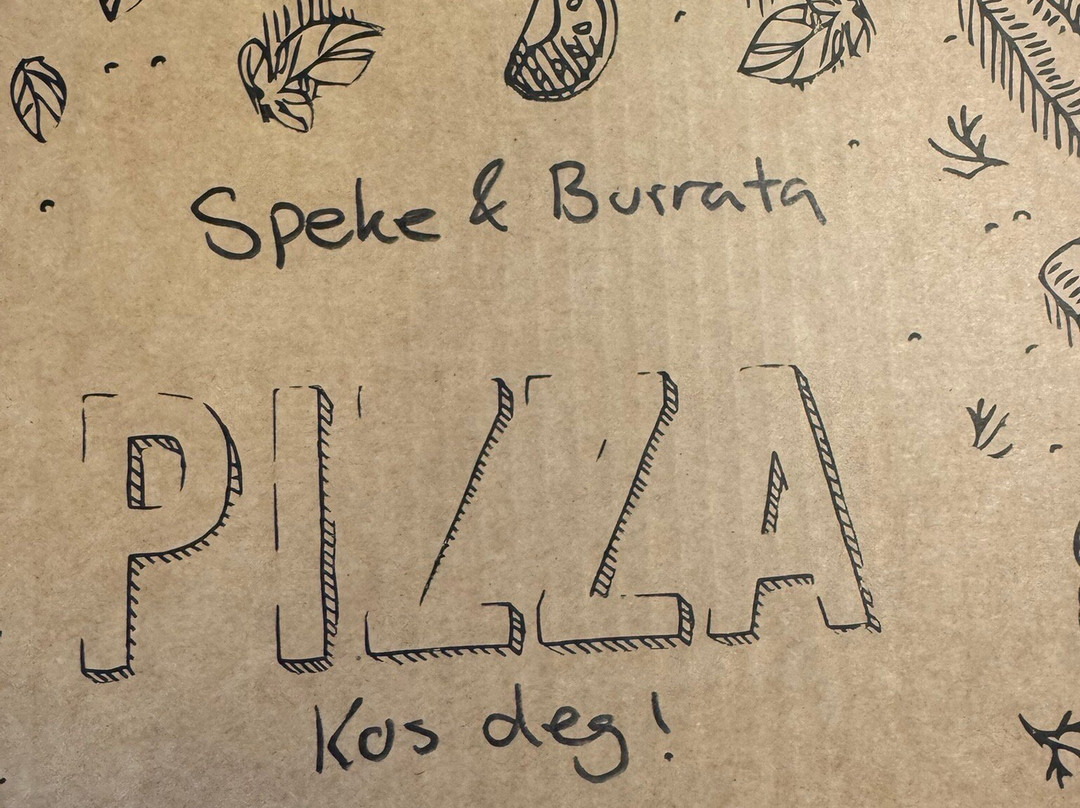 Speke & Burrata
PIZZA
Kos deg!